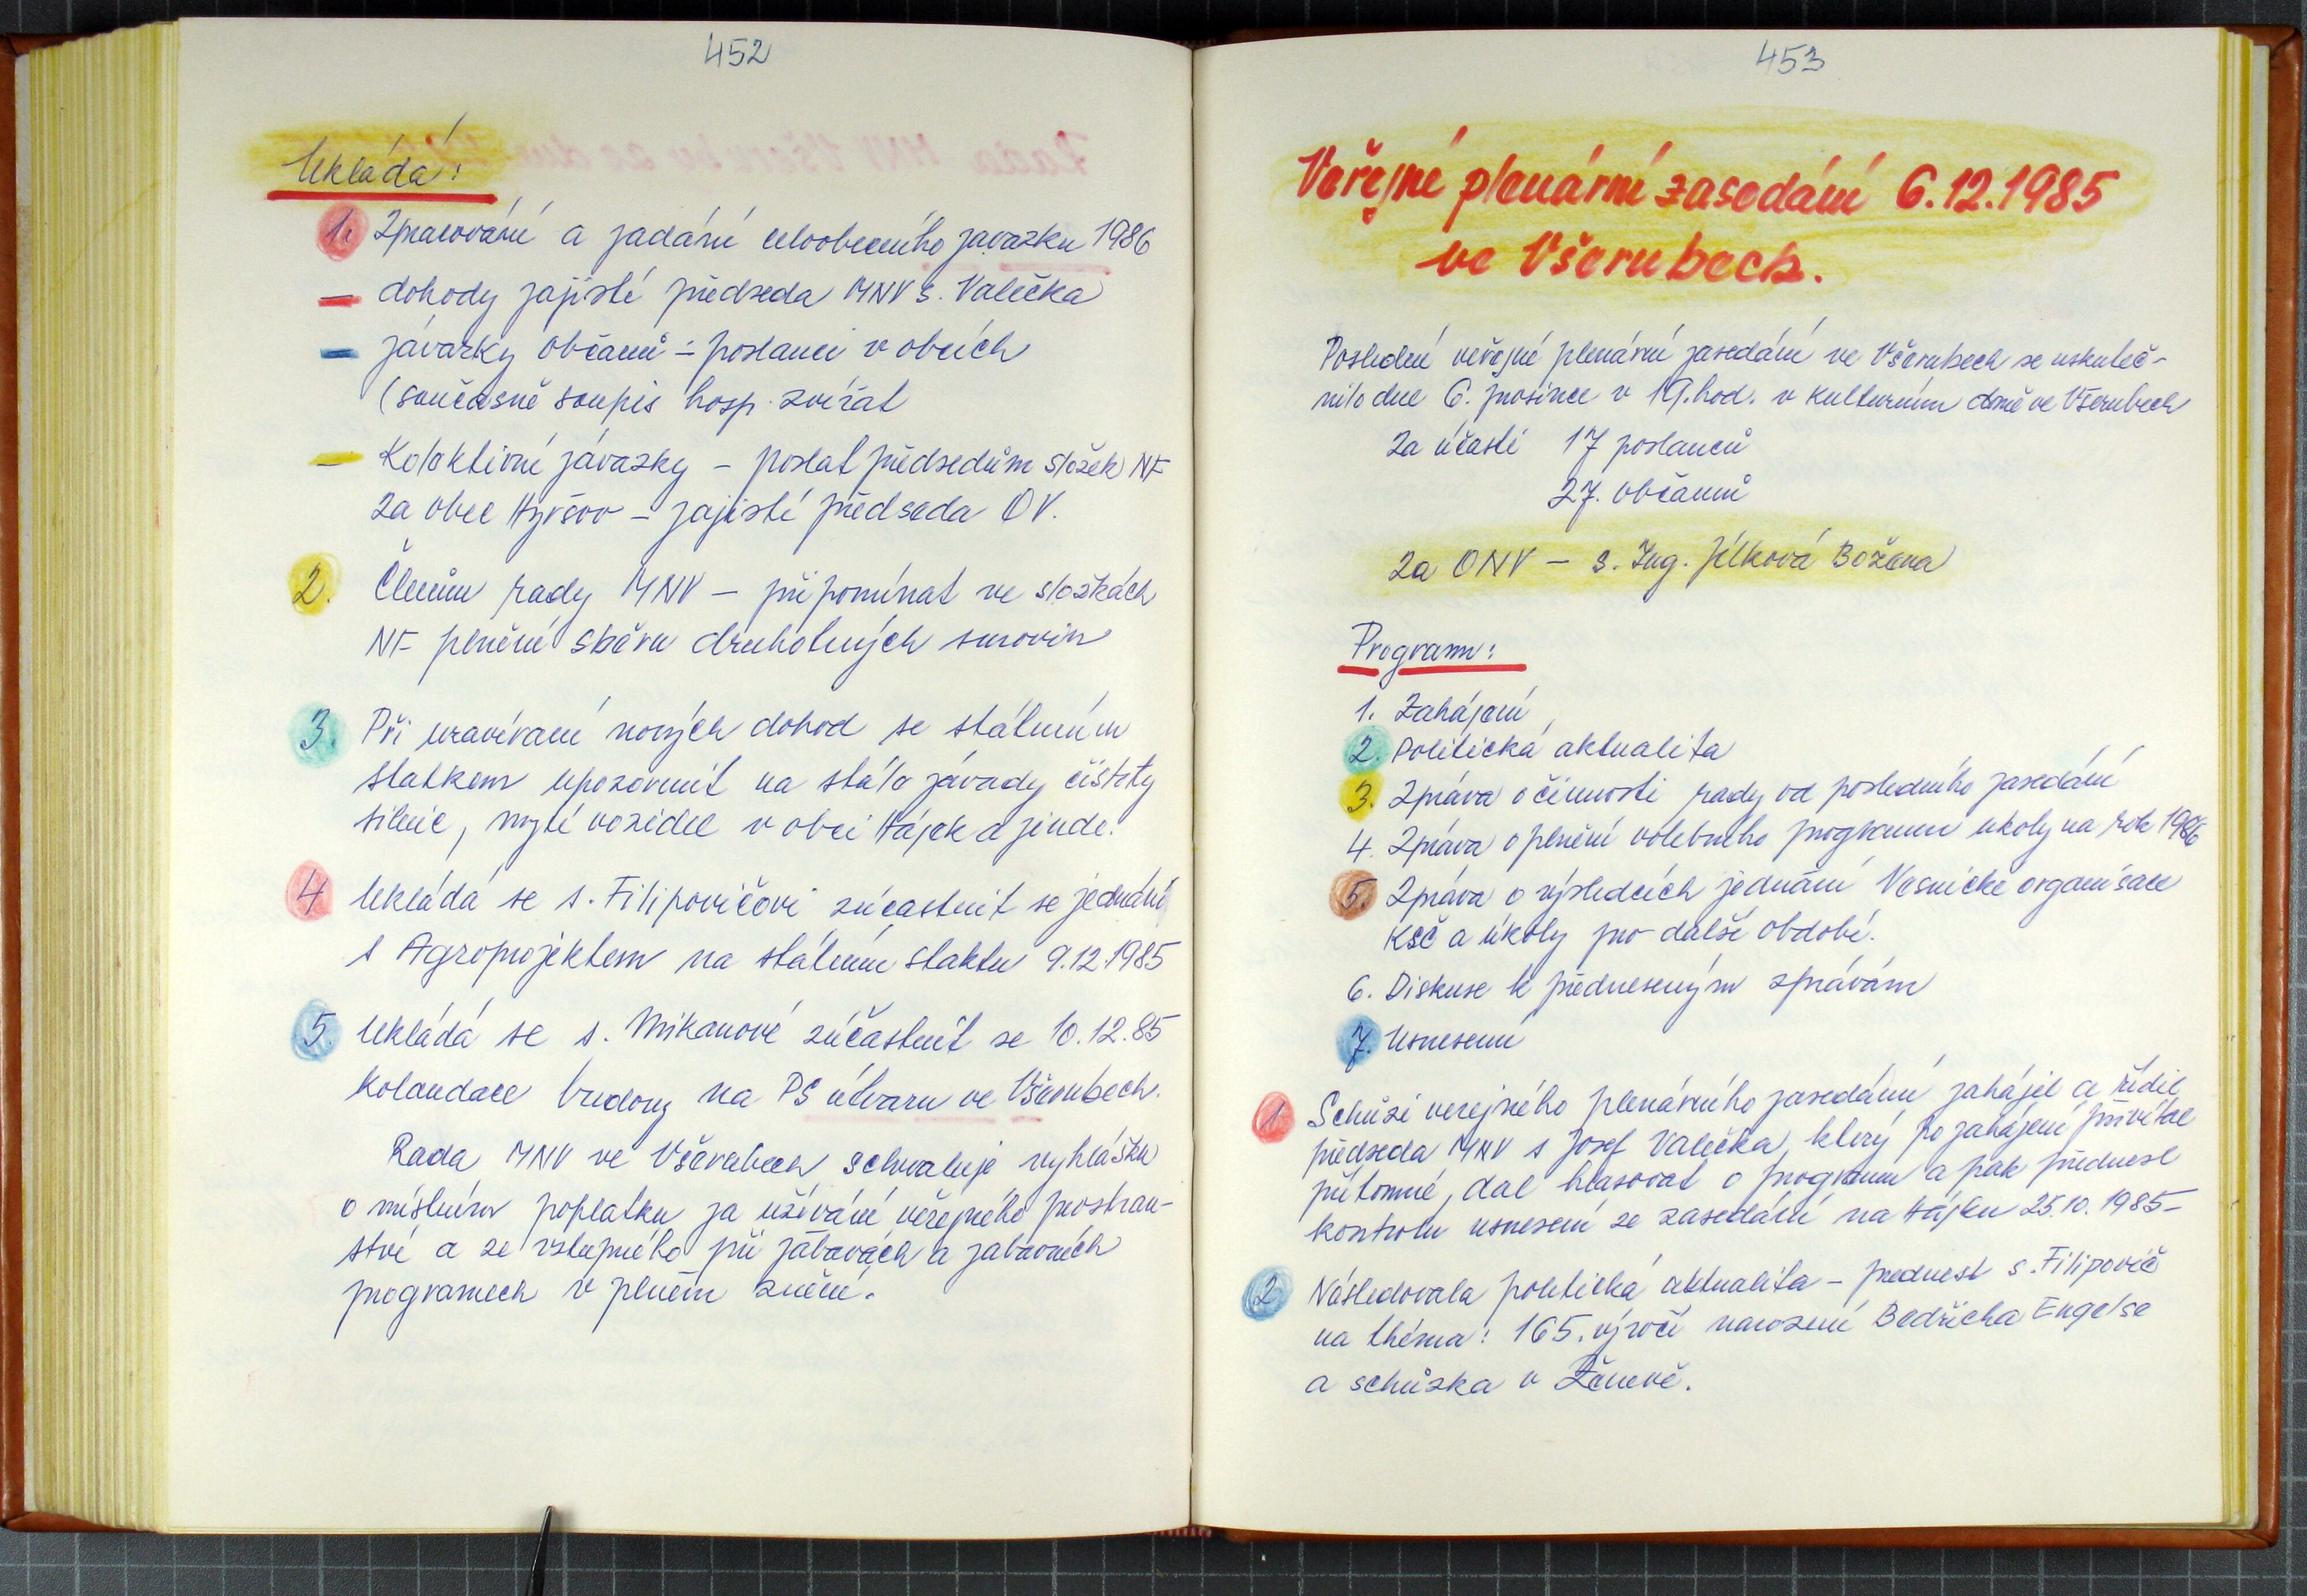 452
Ukládá:
1. Zpracování a zadání celoobecního závazku 1986
– dohody zajistí předseda MNV s. Valečka
– závazky občanů – poslanci v obcích
(současně soupis hosp. zvířat
– Kolektivní závazky – poslat předsedům složek NF
za obec Hyršov – zajistí předseda OV.
2. Členům rady MNV – připomínat ve složkách
NF plnění sběru druhotných surovin
3. Při uzavírání nových dohod se státním
statkem upozornit na stálé závady čistoty
silnic, mytí vozidel v obci Hájek a jinde.
4 Ukládá se s. Filipovičovi zúčastnit se jednání
s Agroprojektem na státním statku 9.12.1985
5. Ukládá se s. Mikanové zúčastnit se 10.12.85
kolaudace budovy na PS útvaru ve Všerubech.
Rada MNV ve Všerubech schvaluje vyhlášku
o místním poplatku za užívání veřejného prostran-
ství a ze vstupného při zábavách a zábavních
programech v plném znění.
453
Veřejné plenární zasedání 6.12.1985
ve Všerubech.
Poslední veřejné plenární zasedání ve Všerubech se uskuteč-
nilo dne 6. prosince v 19.hod. v kulturním domě ve Všerubech
za účasti 17 poslanců
27. občanů
za ONV – s. Ing. Jílková Božena
Program:
1. Zahájení
2. Politická aktualita
3. Zpráva o činnosti rady od posledního zasedání
4. Zpráva o plnění volebního programu úkoly na rok 1986
5. Zpráva o výsledcích jednání Vesnické organisace
KSČ a úkoly pro další období.
6. Diskuse k předneseným zprávám
7. Usnesení
1 Schůzi verejného plenárního zasedání zahájil a řídil
předseda MNV s Josef Valečka, který po zahájení přivítal
přítomné, dal hlasovat o programu a pak přednesl
kontrolu usnesení ze zasedání na Hájku 25.10.1985–
2 Následovala politická aktualita – prednesl s. Filipovič
na théma: 165. výročí narození Bedřicha Engelse
a schůzka v Ženevě.